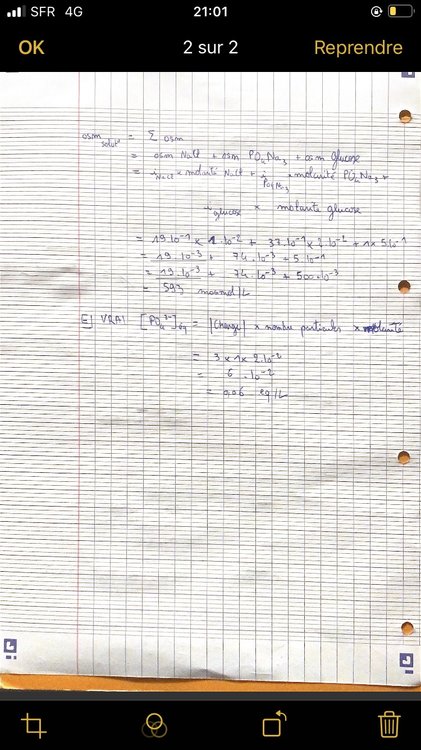 SFR 4G 21:01
OK 2 sur 2 Reprendre
osm solut° = Σ osm
= osm NaCl + osm PO₄Na₃ + osm Glucose
= i NaCl × molarité NaCl + i PO₄Na₃ × molarité PO₄Na₃ +
i glucose × molarité glucose
= 19.10⁻¹ × 1.10⁻² + 37.10⁻¹ × 2.10⁻² + 1 × 5.10⁻¹
= 19.10⁻³ + 74.10⁻³ + 5.10⁻¹
= 19.10⁻³ + 74.10⁻³ + 500.10⁻³
= 593 mosmol/L
E) VRAI [PO₄³⁻]éq = |Charge| × nombre particules × molarité
= 3 × 1 × 2.10⁻²
= 6.10⁻²
= 0,06 eq/L